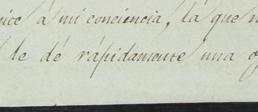 á mi conciencia, la que
le dé rápidamente una